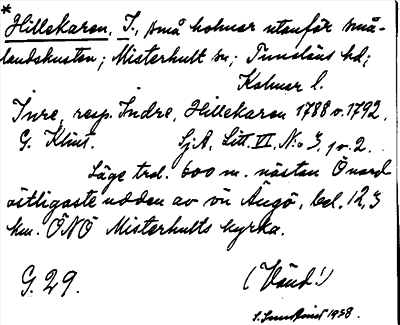 *
Hillekaren, I., små holmar utanför små-
landskusten; Misterhult sn; Tunaläns hd;
Kalmar l.
Inre, resp. Indre, Hillekaren 1788 o. 1792,
G. Klint. SjA, Litt. VI, N:o 3, 1 o. 2.
Läge trol. 600 m. nästan O nord
östligaste udden av ön Ängö, bel. 12,3
km. ÖNÖ Misterhults kyrka.
G. 29. (Vänd!)
1958.